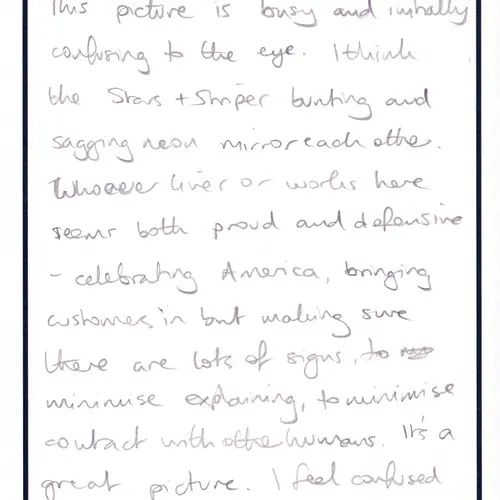 This picture is busy and initially
confusing to the eye. I think
the Stars + Striper bunting and
sagging neon mirror each other.
Whoever lives or works here
seems both proud and defensive
- celebrating America, bringing
customers in but making sure
there are lots of signs, to
minimise explaining, to minimise
contact with other humans. It's a
great picture. I feel confused